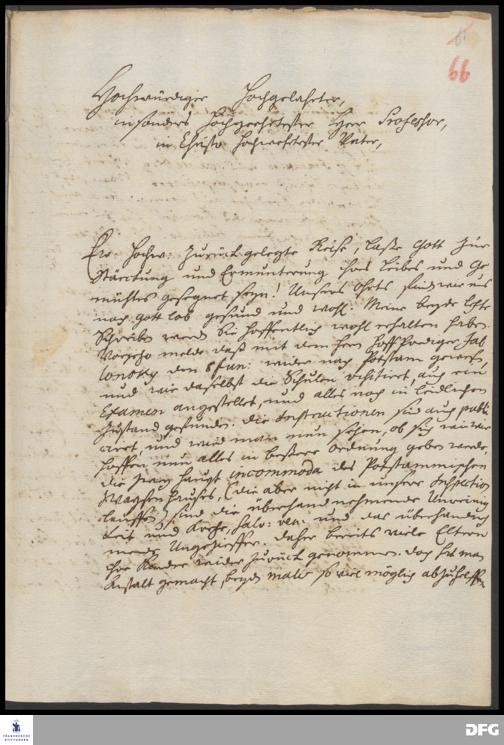 66
Hochwürdiger Hochgelahrter,
insonders Hochgeehrtester Herr Professor,
in Christo Hochwehrtester Vater,
Ew: Hochw: zurückgelegte Reise, laße Gott zur
Stärckung und Ermunterung ihres Leibes und Ge
müthes gesegnet seyn! Unsers Ohrts sind wir
noch Gott lob gesund und wohl. Meine beyde letzte
Schreiben werden Sie hoffentlich wohl erhalten haben.
melde daß mit dem Herrn HoffPrediger Jab
lonsky den 8 Jun: wieder nach Potstam gewesen,
und wir daselbst die Schulen visitiret, auch ein
Examen angestellet, und alles noch in leidlichen
Zustand gefunden. Die Instructionen sind auch publi
ciret, und wird man nun sehen, ob sich, wie wir
hoffen nun alles in bessere Ordnung geben werde.
die zwey Haupt incommoda des Potstammischen
Waysenhauses, (die aber nicht in unsere Inspection
lauffen,) sind die überhandnehmende Unreinig
keit und Kretze, salv: ven. und das überhandneh
mende Ungeziffer. daher bereits viele Eltern
ihre Kinder wieder zurück genommen. doch hat man
Anstalt gemacht, beyden malis so viel möglich abzuhelffen
FRANCKESCHE
STIFTUNGEN
DFG